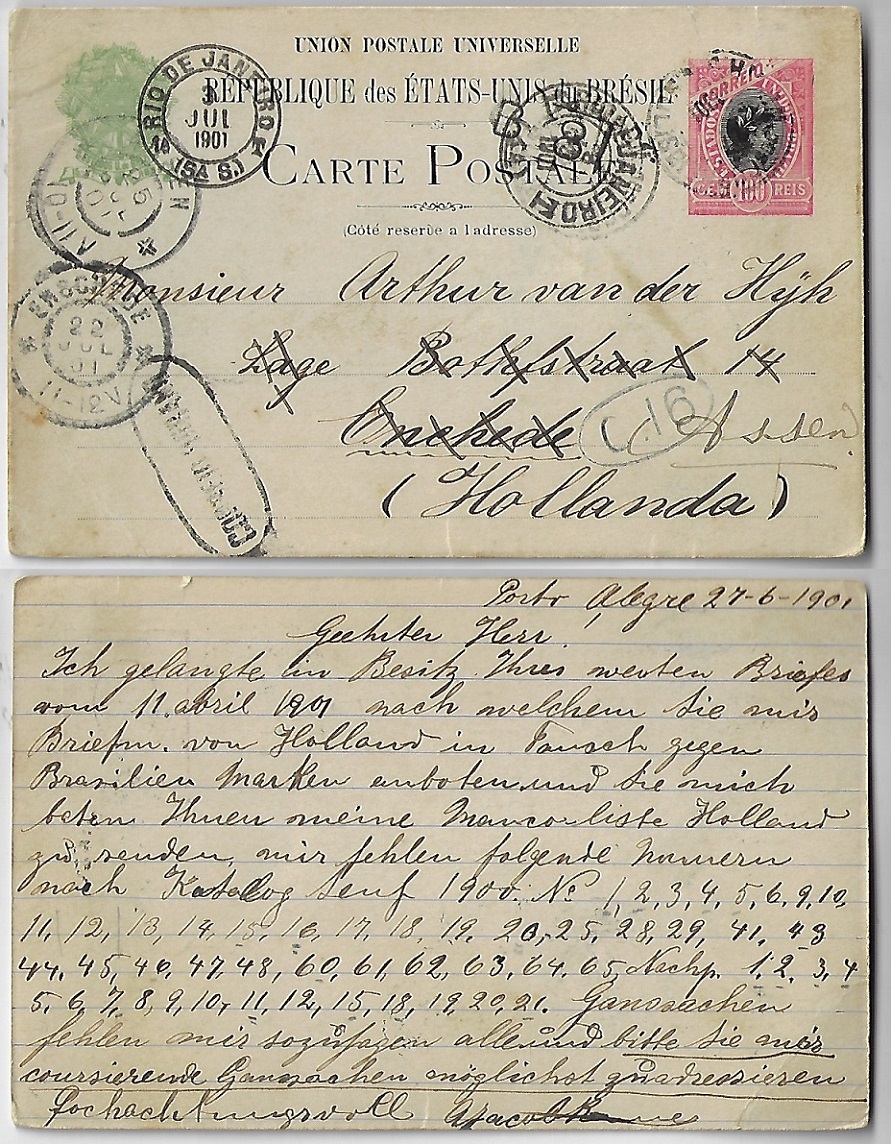 UNION POSTALE UNIVERSELLE
RÉPUBLIQUE des ÉTATS-UNIS du BRÉSIL
CARTE POSTALE
(Côté reserve a ladresse)
RIO DE JANEIRO
3
JUL
1901
(5A S.)
CORREIO
100 REIS
25
ENSCHEDE
22
JUL
01
11-12V
Monsieur Arthur van der Hijh
Lage Bothofstraat 14
Enschede Assen
(Hollanda)
Porto Alegre 27-6-1901
Geehrter Herr
Ich gelangte im Besitz Ihres werten Briefes
vom 11. abril 1901 nach welchem Sie mir
Briefm. von Holland in Tausch gegen
Brasilien Marken anboten und Sie mich
baten Ihnen meine Manco-liste Holland
zu senden, mir fehlen folgende Nummern
nach Katalog Senf 1900. No 1, 2, 3, 4, 5, 6, 9, 10,
11, 12, 13, 14, 15, 16, 17, 18, 19, 20, 25, 28, 29, 41, 43
44, 45, 46, 47, 48, 60, 61, 62, 63, 64, 65, Nachp. 1, 2, 3, 4
5, 6, 7, 8, 9, 10, 11, 12, 15, 18, 19, 20, 21. Ganssachen
fehlen mir sozusagen alle und bitte Sie mir
coursierende Ganssachen möglichst zu adressieren
Hochachtungsvoll